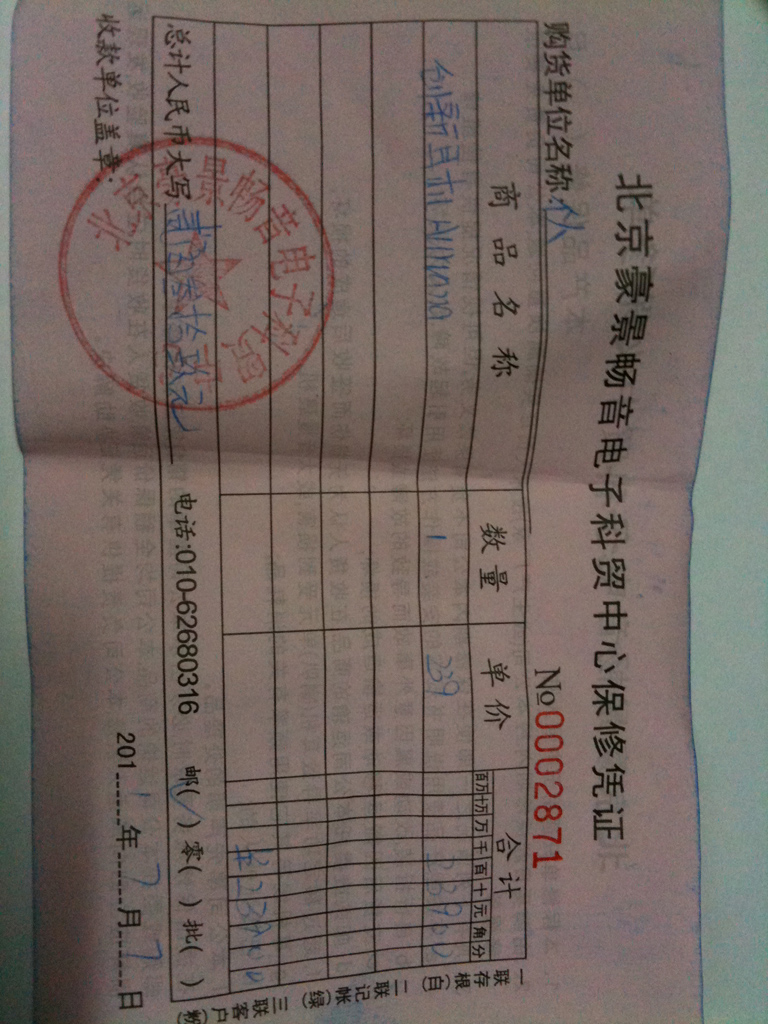 北京豪景畅音电子科贸中心保修凭证
购货单位名称:
№0002871
商品名称 数量 单价 合计
百万 十万 万 千 百 十 元 角 分
创新耳机 1 239 23900
¥23900
总计人民币大写 贰佰叁拾玖元 电话:010-62680316 邮(✓) 零( ) 批( )
收款单位盖章:
2011年7月7日
一联存根(白) 二联记帐(绿) 三联客户(粉